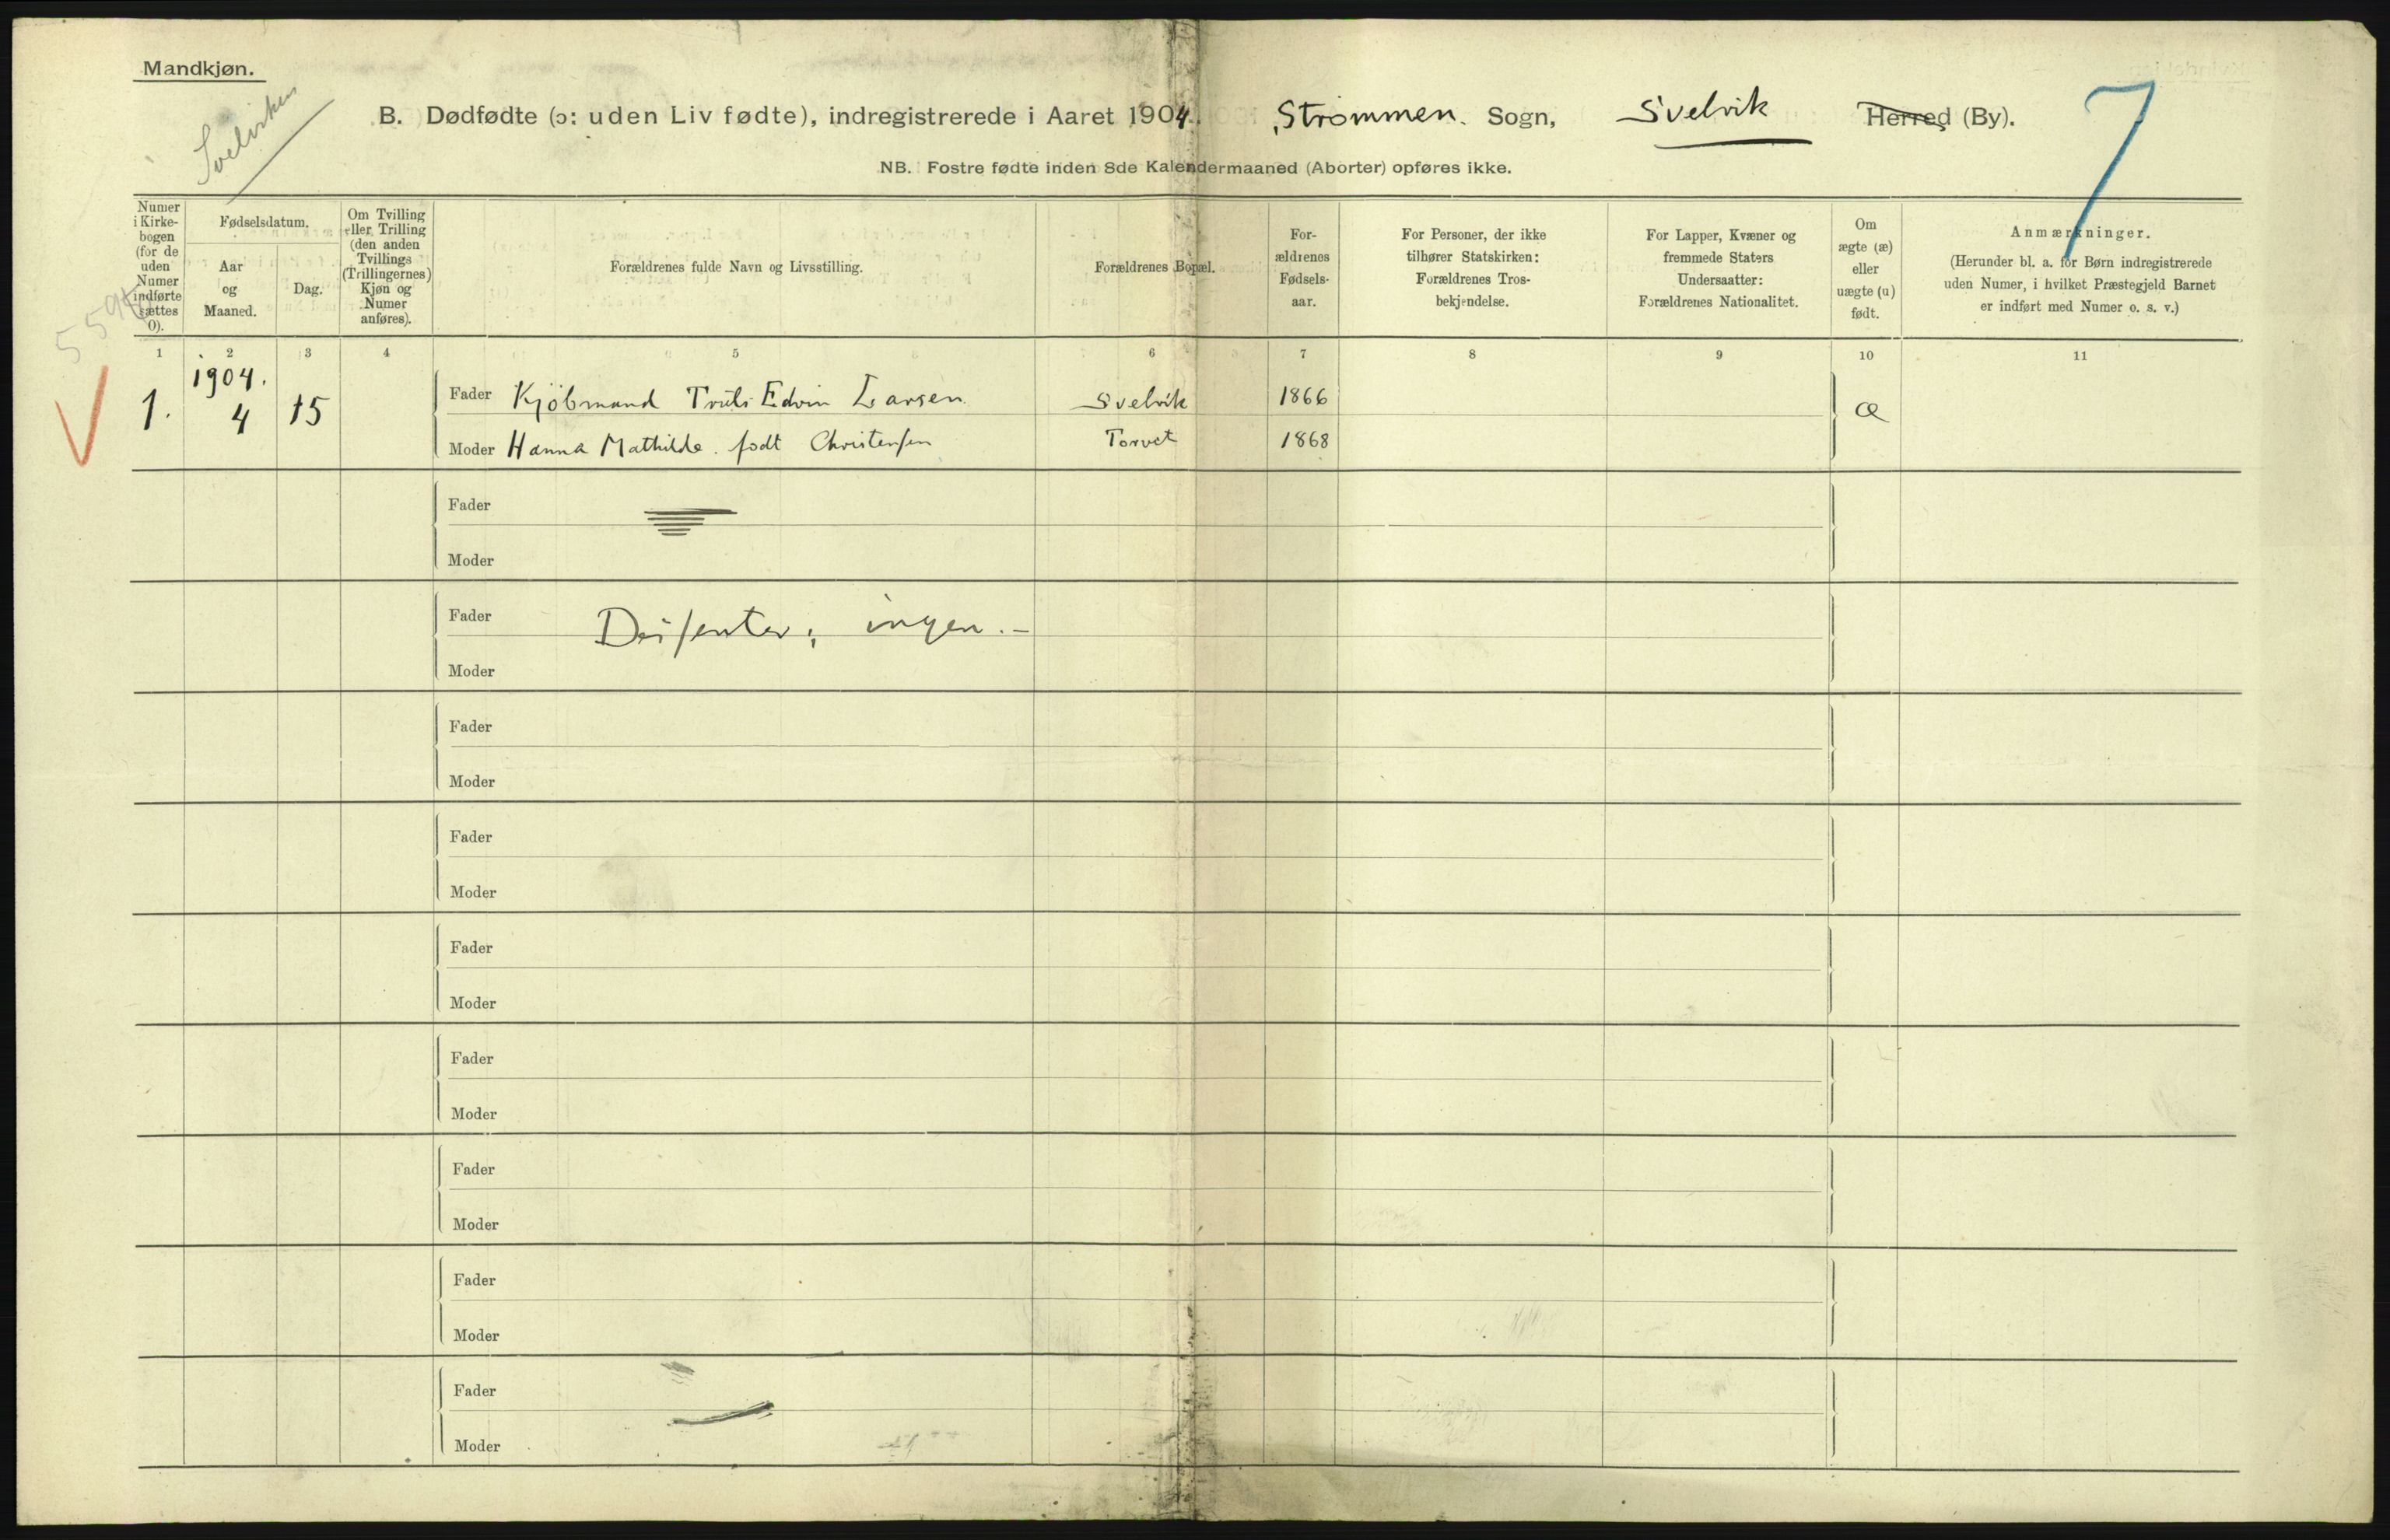 Mandkjøn.
Svelviken
B. Dødfødte (ɔ: uden Liv fødte), indregistrerede i Aaret 1904. Strömmen. Sogn, Svelvik Herred (By).
7
NB. Fostre fødte inden 8de Kalendermaaned (Aborter) opføres ikke.
Numer i Kirke-bogen (for de uden Numer indførte sættes 0).
Fødselsdatum.
Aar og Maaned.
Dag.
Om Tvilling eller Trilling (den anden Tvillings (Trillingernes) Kjøn og Numer anføres).
Forældrenes fulde Navn og Livsstilling.
Forældrenes Bopæl.
For-ældrenes Fødsels-aar.
For Personer, der ikke tilhører Statskirken: Forældrenes Tros-bekjendelse.
For Lapper, Kvæner og fremmede Staters Undersaatter: Forældrenes Nationalitet.
Om ægte (æ) eller uægte (u) født.
Anmærkninger.
(Herunder bl. a. for Børn indregistrerede uden Numer, i hvilket Præstegjeld Barnet er indført med Numer o. s. v.)
1 2 3 4 5 6 7 8 9 10 11
1904.
1. 4 15 Fader Kjöbmand Truls Edvin Larsen Svelvik 1866 æ
Moder Hanna Mathilde. födt Christensen Torvet 1868
Fader
Moder
Fader Dissenter; ingen.-
Moder
Fader
Moder
Fader
Moder
Fader
Moder
Fader
Moder
Fader
Moder
Fader
Moder
Fader
Moder